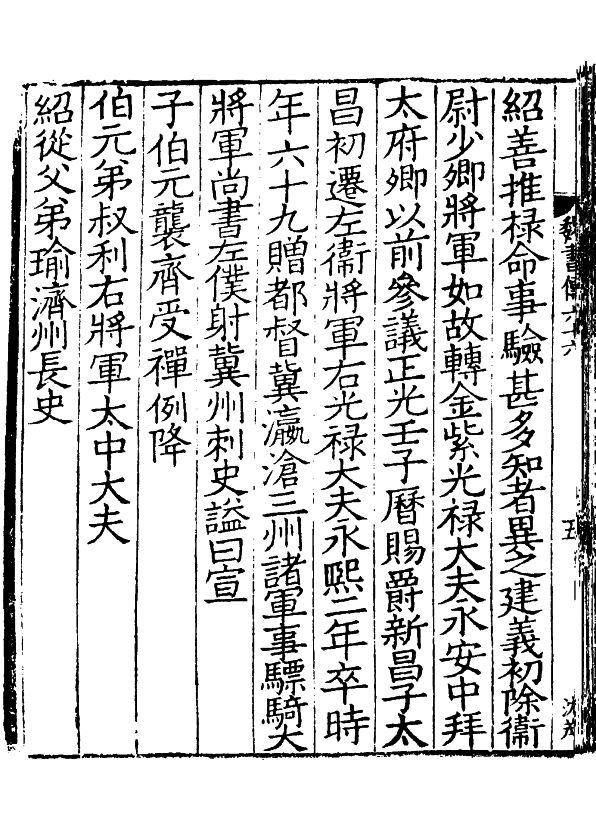 紹善推祿命事驗甚多知者異之建義初除衞
尉少卿將軍如故轉金紫光祿大夫永安中拜
太府卿以前參議正光壬子曆賜爵新昌子太
昌初遷左衞將軍右光祿大夫永熙二年卒時
年六十九贈都督冀瀛滄三州諸軍事驃騎大
將軍尚書左僕射冀州刺史謚曰宣
子伯元襲齊受禪例降
伯元弟叔利右將軍太中大夫
紹從父弟瑜濟州長史
魏書傳六十六
五